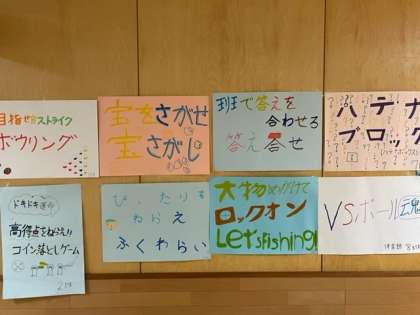 目指せストライク
ボウリング
宝をさがせ
宝さがし
班で答えを
合わせる
答え合せ
ハテナ
ブロック
ドキドキ
高得点をねらえ!!
コイン落としゲーム
ぴったりを
ねらえ
ふくわらい
大物めがけて
ロックオン
Let's fishing!
VSボール魂